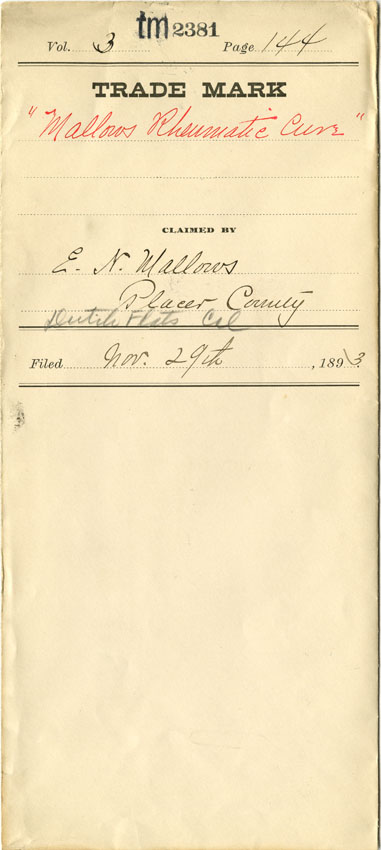 tm 2381
Vol. 3 Page 144
TRADE MARK
"Mallows Rheumatic Cure"
CLAIMED BY
E. N. Mallows
Placer County
Dutch Flats Cal
Filed Nov. 29th, 1893.